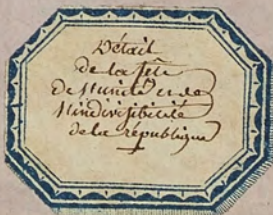 Détail
de la fête
de l'unité et de
l'indivisibilité
de la république